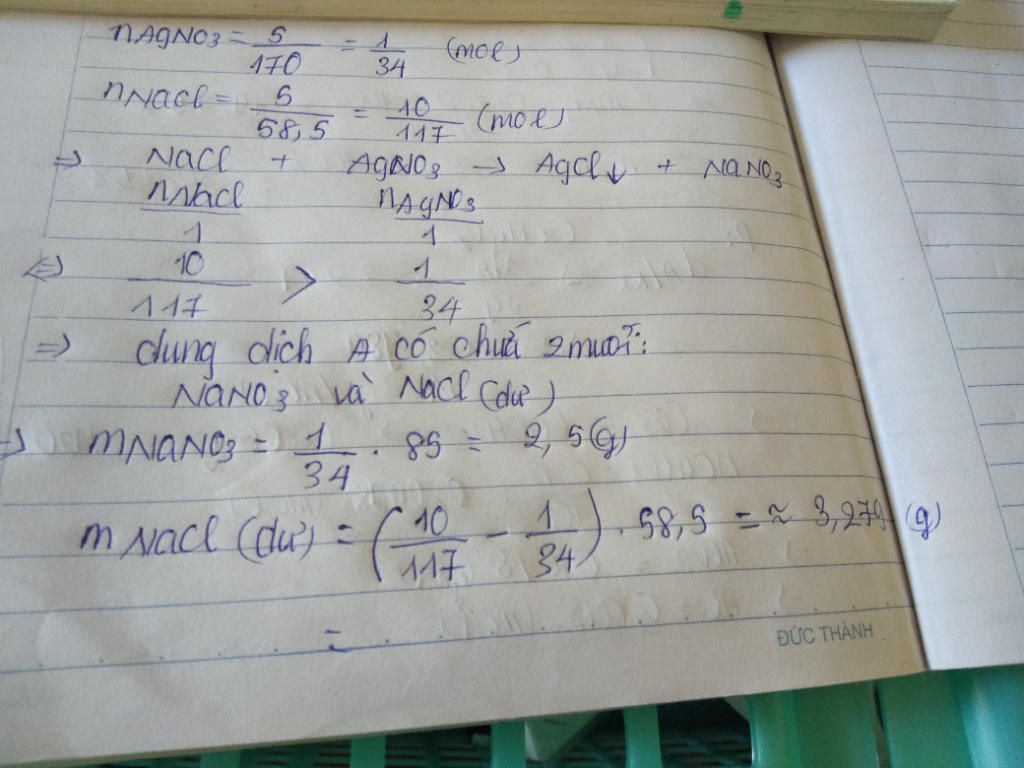 nAgNO₃ = 5/170 = 1/34 (mol)
nNaCl = 5/58,5 = 10/117 (mol)
⇒ NaCl + AgNO₃ → AgCl↓ + NaNO₃
nNaCl/1 nAgNO₃/1
⇔ 10/117 > 1/34
⇒ dung dịch A có chứa 2 muối:
NaNO₃ và NaCl (dư)
→ mNaNO₃ = 1/34 . 85 = 2,5(g)
mNaCl (dư) = (10/117 − 1/34) . 58,5 = ≈ 3,279 (g)
=
ĐỨC THÀNH